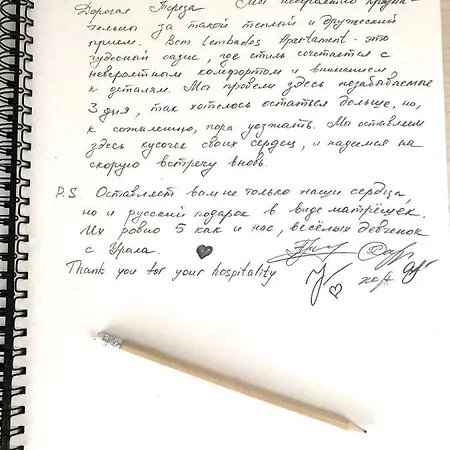 Дорогая Тереза Мы невероятно призна-
тельны за такой теплый и дружеский
прием. Bem Lembados Apartament - это
чудесный оазис, где стиль сочетается с
невероятным комфортом и вниманием
к деталям. Мы провели здесь незабываемые
3 дня, так хотелось остаться дольше, но,
к сожалению, пора уезжать. Мы оставляем
здесь кусочек своих сердец, и надеемся на
скорую встречу вновь.
P.S Оставляем вам не только наши сердца,
но и русский подарок в виде матрёшек.
Их ровно 5 как и нас, весёлых девченок
с Урала.
Thank you for your hospitality